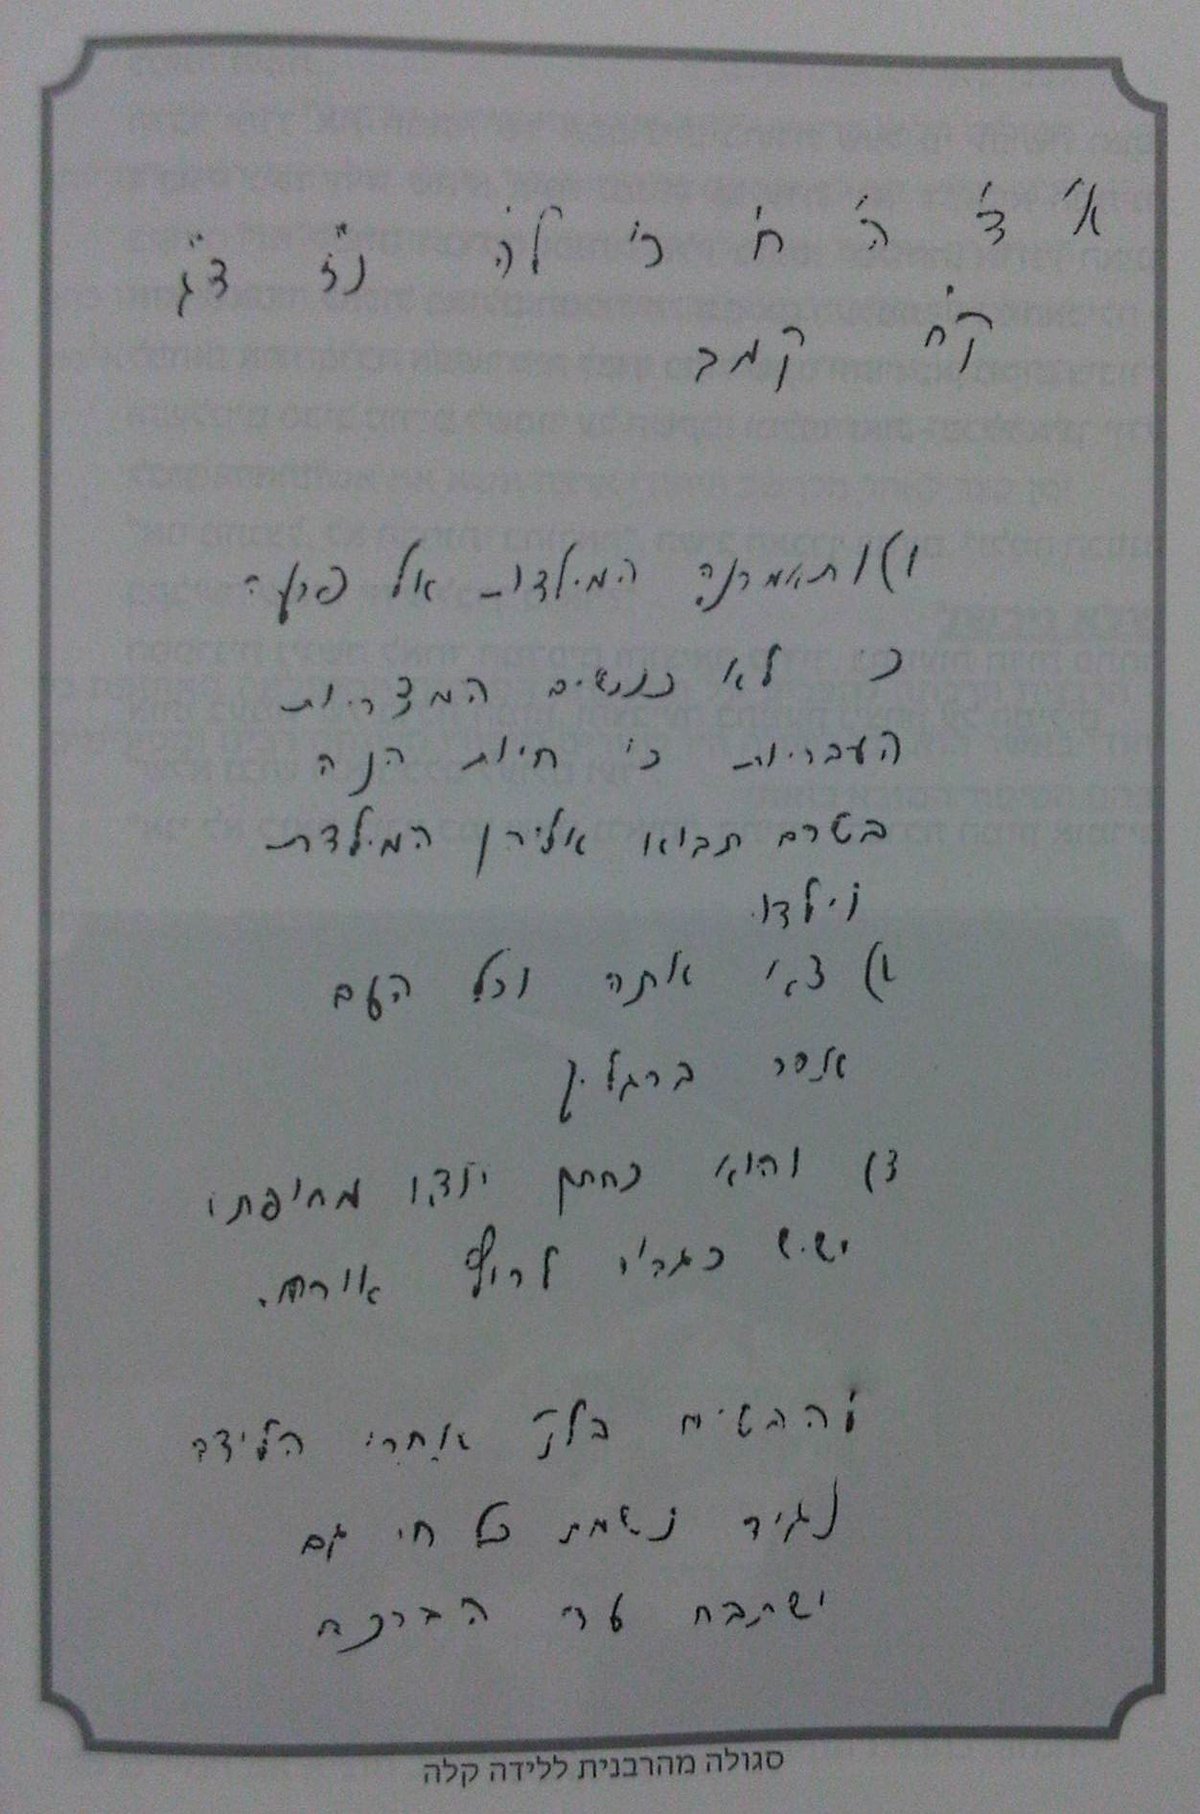 א' ד' ה' ח' כ' לה נ"ז צ"ג
ק"ח קמב
ו) ותאמרנה המילדות אל פרעה
כי לא כנשים המצריות
העבריות כי חיות הנה
בטרם תבוא אליהן המילדת
וילדו.
ו) צא אתה וכל העם
אשר ברגליך
והוא כחתן יוצא מחופתו
ישיש כגבור לרוץ אורח.
אחרי הלידה
נגיד נשמת כל חי גם
ישתבח עד הברכה
סגולה מהרבנית ללידה קלה